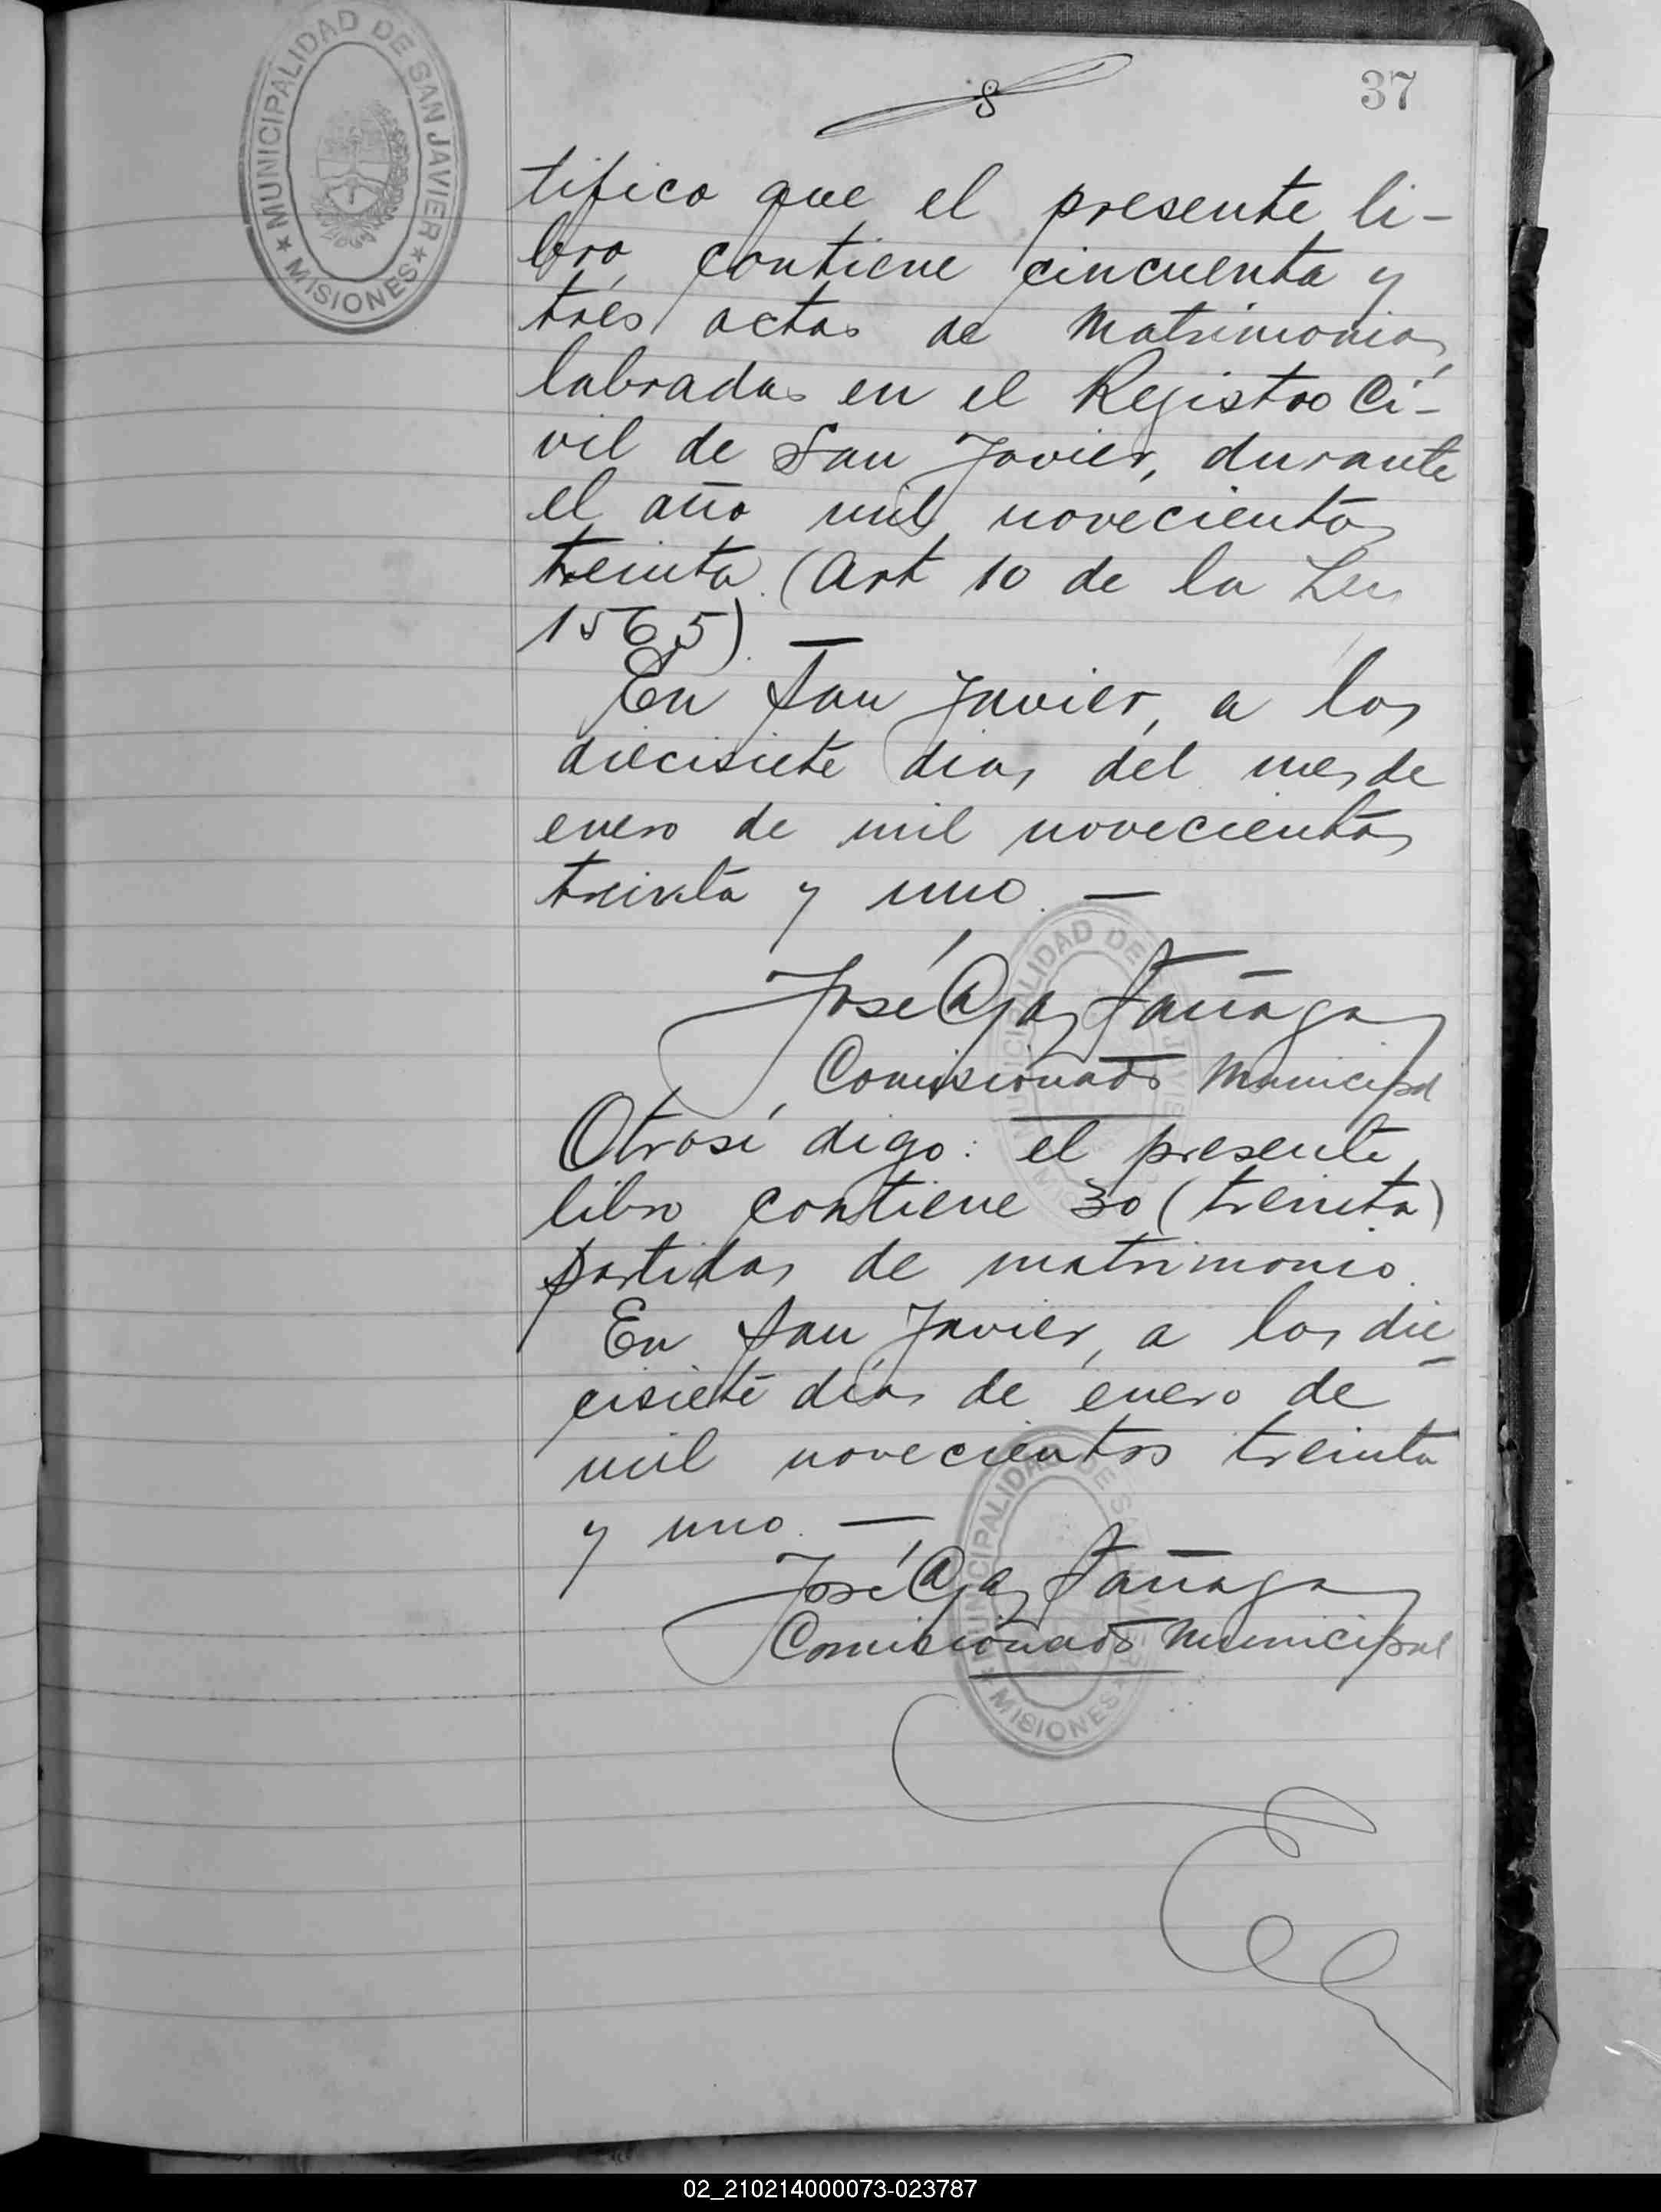 MUNICIPALIDAD DE SAN JAVIER
★ MISIONES ★
37
tifico que el presente li-
bro, contiene cincuenta y
tres actas de Matrimonios,
labradas en el Registro Ci-
vil de San Javier, durante
el año mil novecientos
treinta. (Art 10 de la Ley
1565). —
En San Javier, a los
diecisiete dias del mes de
enero de mil novecientos
treinta y uno. —
José
Comisionado Municipal
Otrosí digo: el presente
libro contiene 30 (treinta)
partidas de matrimonio.
En San Javier, a los die-
cisiete días de enero de
mil novecientos treinta
y uno. —
José
Comisionado Municipal
MUNICIPALIDAD DE SAN JAVIER
★ MISIONES ★
02_210214000073-023787